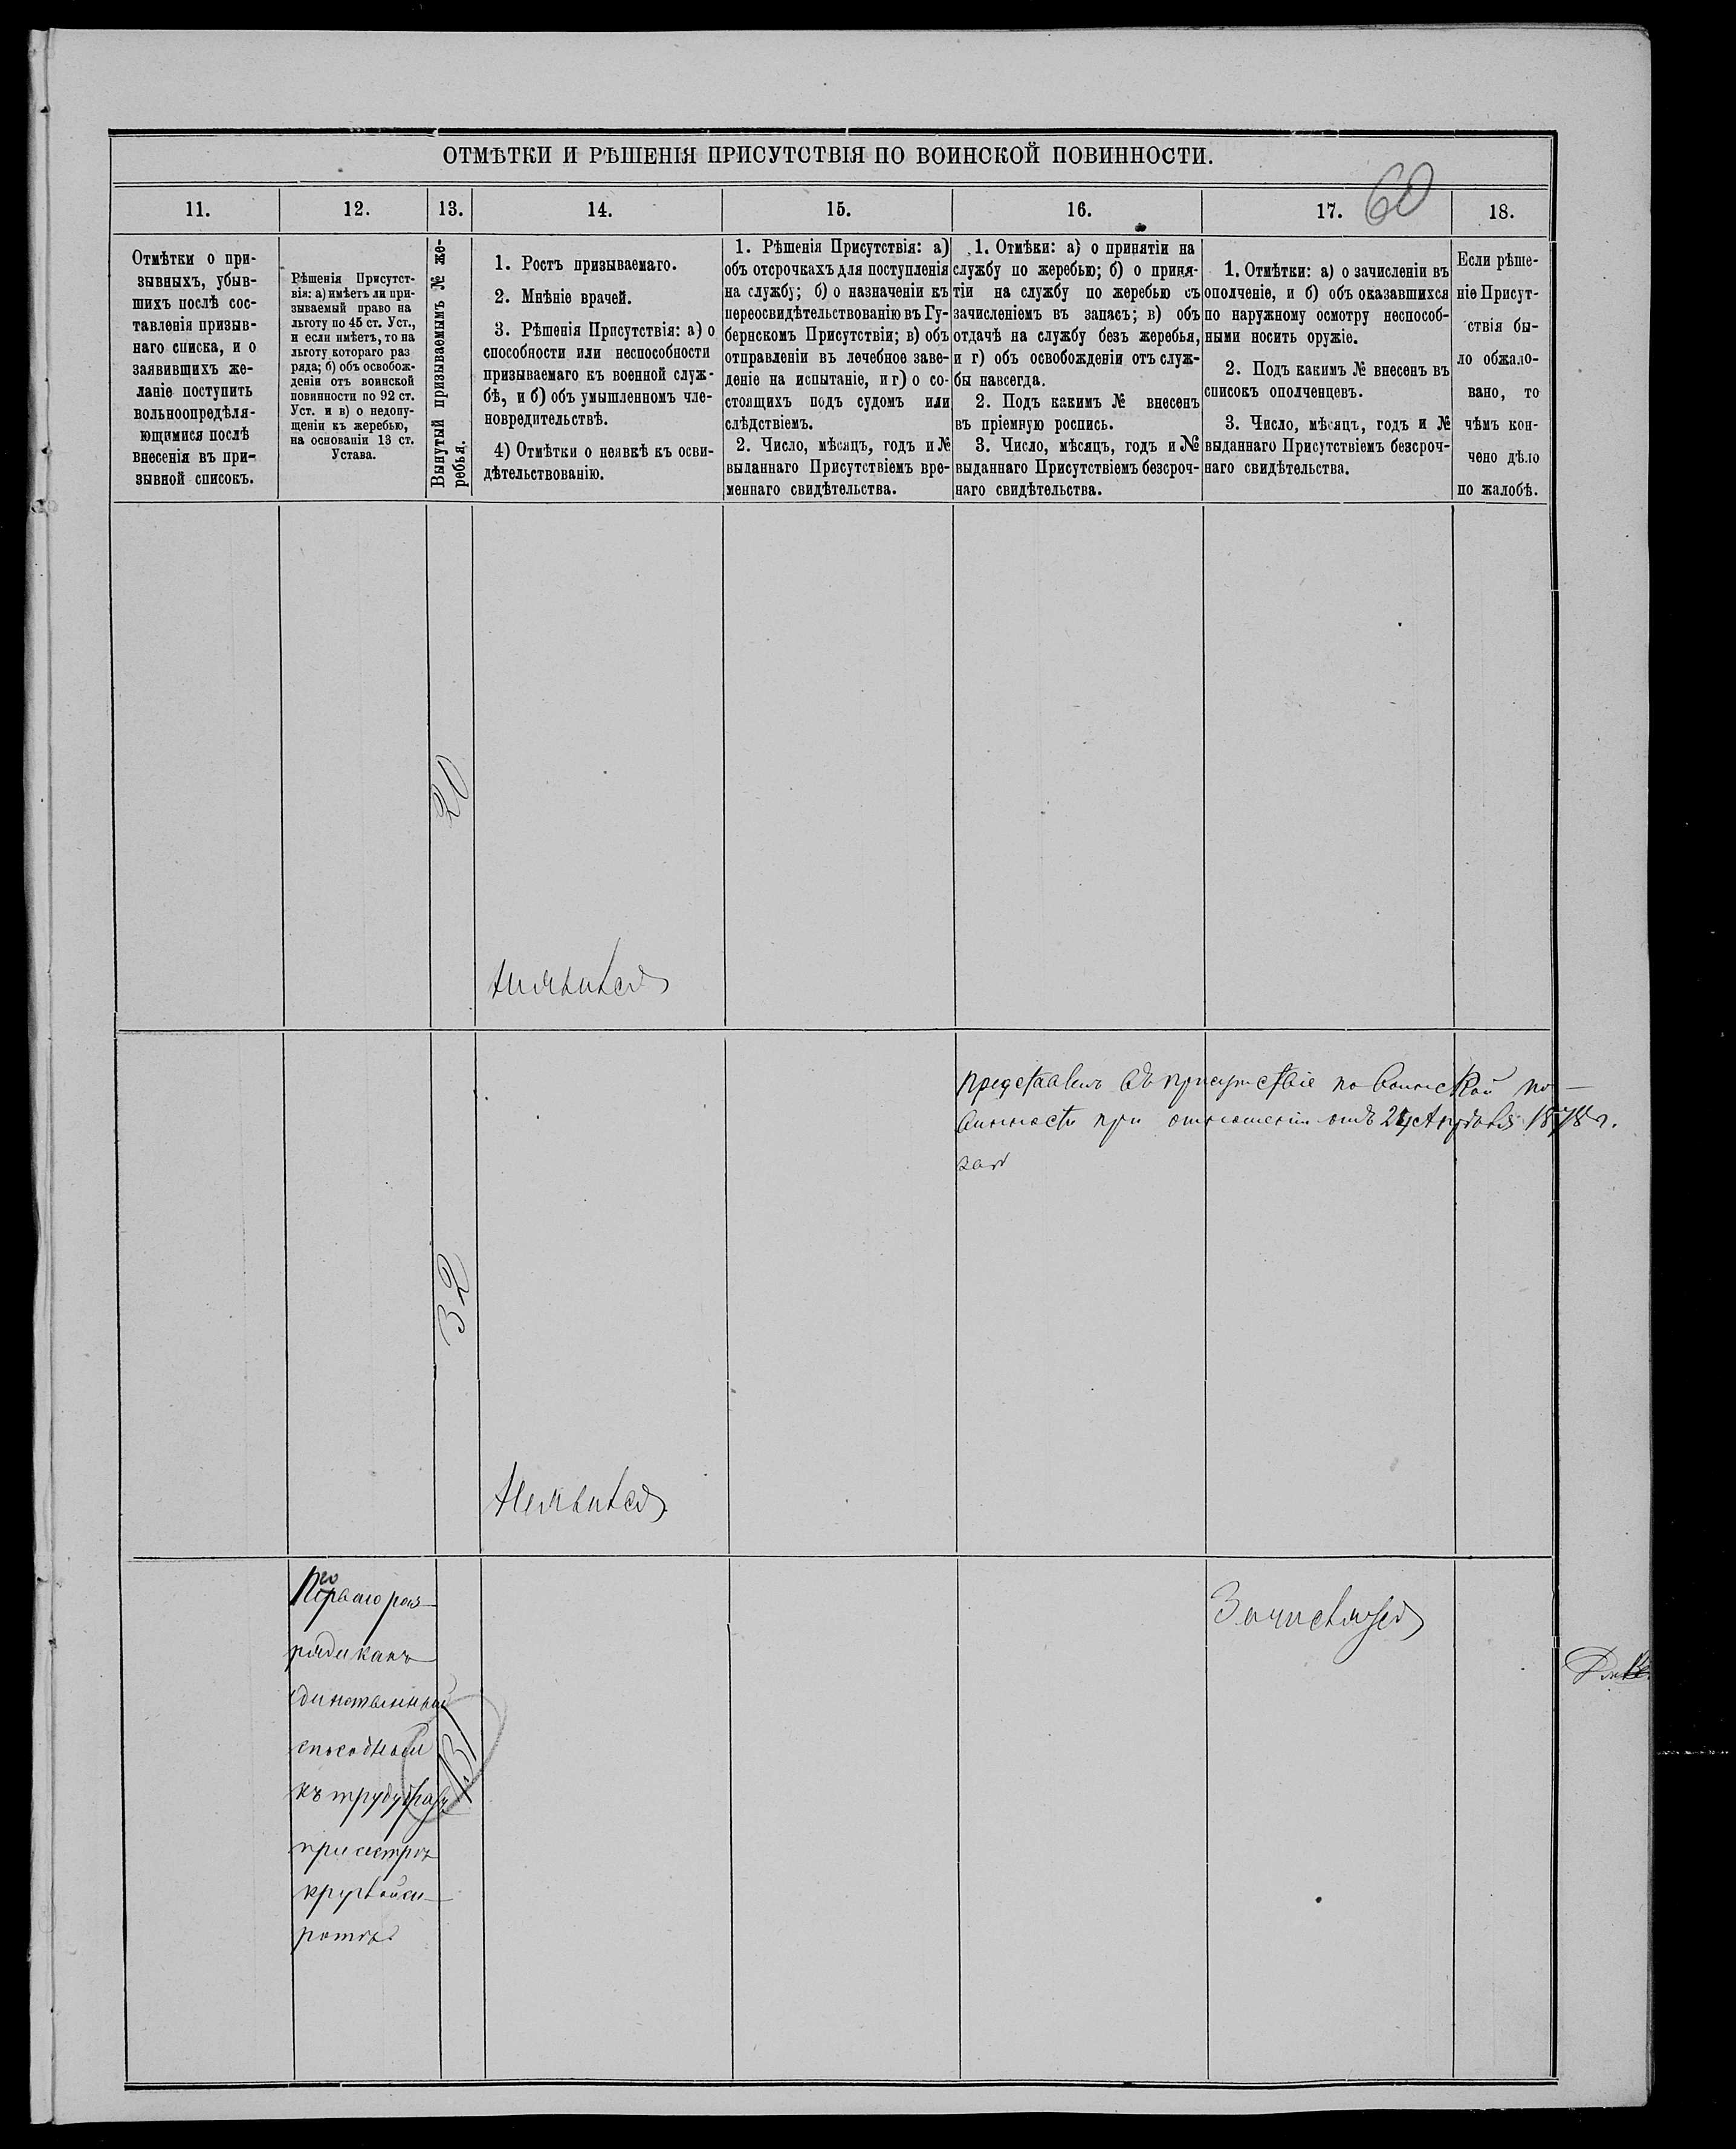 ОТМѢТКИ И РѢШЕНІЯ ПРИСУТСТВІЯ ПО ВОИНСКОЙ ПОВИННОСТИ.
60
11.
12.
13.
14.
15.
16.
17.
18.
Отмѣтки о при-
зывныхъ, убыв-
шихъ послѣ сос-
тавленія призыв-
наго списка, и о
заявившихъ же-
ланіе поступить
вольноопредѣля-
ющимися послѣ
внесенія въ при-
зывной списокъ.
Рѣшенія Присутст-
вія: а) имѣетъ ли при-
зываемый право на
льготу по 45 ст. Уст.,
и если имѣетъ, то на
льготу котораго раз
ряда; б) объ освобож-
деніи отъ воинской
повинности по 92 ст.
Уст. и в) о недопу-
щеніи къ жеребью,
на основаніи 13 ст.
Устава.
Вынутый призываемымъ № же-
ребья.
1. Ростъ призываемаго.
2. Мнѣніе врачей.
3. Рѣшенія Присутствія: а) о
способности или неспособности
призываемаго къ военной служ-
бѣ, и б) объ умышленномъ чле-
новредительствѣ.
4) Отмѣтки о неявкѣ къ осви-
дѣтельствованію.
1. Рѣшенія Присутствія: а)
объ отсрочкахъ для поступленія
на службу; б) о назначеніи къ
переосвидѣтельствованію въ Гу-
бернскомъ Присутствіи; в) объ
отправленіи въ лечебное заве-
деніе на испытаніе, и г) о со-
стоящихъ подъ судомъ или
слѣдствіемъ.
2. Число, мѣсяцъ, годъ и №
выданнаго Присутствіемъ вре-
меннаго свидѣтельства.
1. Отмѣки: а) о принятіи на
службу по жеребью; б) о приня-
тіи на службу по жеребью съ
зачисленіемъ въ запасъ; в) объ
отдачѣ на службу безъ жеребья,
и г) объ освобожденіи отъ служ-
бы навсегда.
2. Подъ какимъ № внесенъ
въ пріемную роспись.
3. Число, мѣсяцъ, годъ и №
выданнаго Присутствіемъ безсроч-
наго свидѣтельства.
1. Отмѣтки: а) о зачисленіи въ
ополченіе, и б) объ оказавшихся
по наружному осмотру неспособ-
ными носить оружіе.
2. Подъ какимъ № внесенъ въ
списокъ ополченцевъ.
3. Число, мѣсяцъ, годъ и №
выданнаго Присутствіемъ безсроч-
наго свидѣтельства.
Если рѣше-
ніе Присут-
ствія бы-
ло обжало-
вано, то
чѣмъ кон-
чено дѣло
по жалобѣ.
20
Неявился
представленъ въ присутствіе по воинской по-
винности при отношеніи отъ 24 Апрѣля 1878 г.
32
Неявился
Перваго раз-
ряда какъ
единственный
способный
къ труду братъ
при сестрѣ
круглой си-
ротѣ.
13
Зачисляется